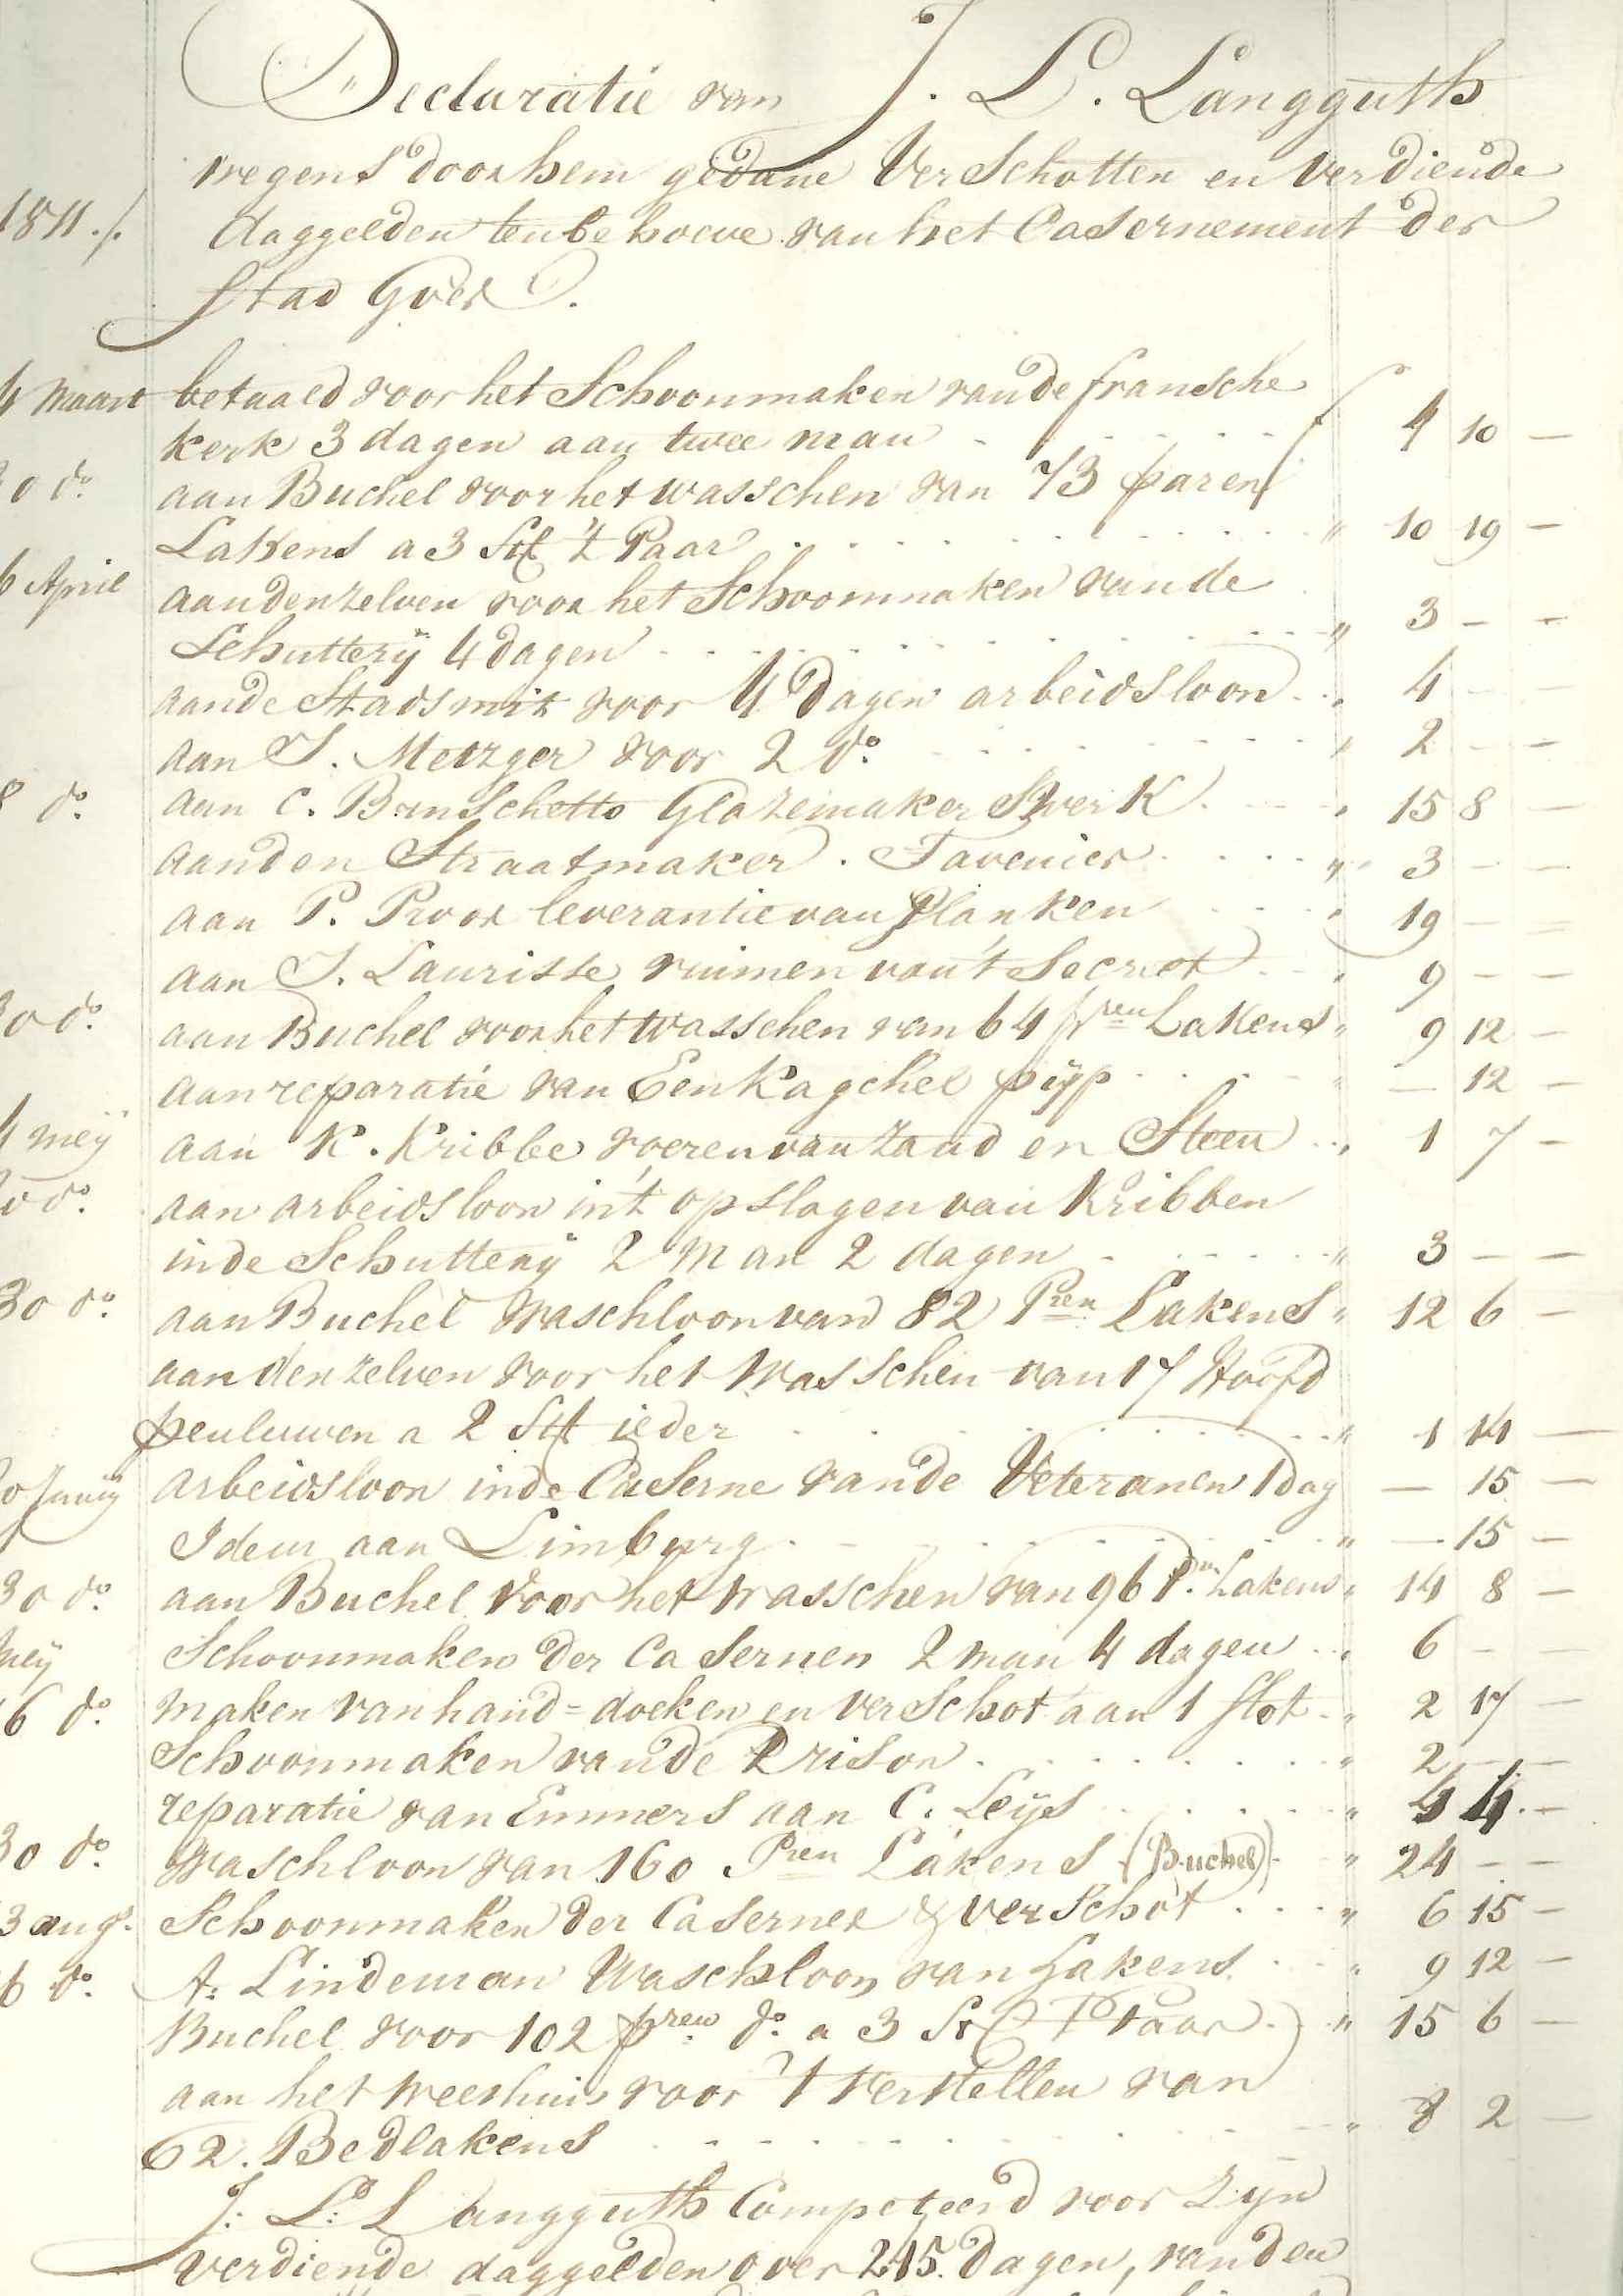 Declaratie van J. L. Langguth
wegens door hem gedane Verschotten en Verdiende
1811./. daggelden ten behoeve van het Casernement der
Stad Goes.
4 Maart betaald voor het Schoonmaken van de fransche
kerk 3 dagen aan twee man f 4 10 —
30 do. aan Buchel voor het wasschen van 73 paren
Lakens a 3 St 't Paar " 10 19 —
6 April aan denzelven voor het Schoonmaken van de
Schutterij 4 dagen " 3 — —
aan de Stadsmit voor 4 dagen arbeidsloon " 4 — —
aan J. Metzger voor 2 do. " 2 — —
8 do. aan C. Glazemakers werk " 15 8 —
aan den Straatmaker. Tavenier " 3 — —
aan P. Proos leverantie van planken " 19 — —
aan J. Laurisse ruimen van 't Secreet " 9 — —
30 do. aan Buchel voor het wasschen van 64 pren Lakens " 9 12 —
aan reparatie van Een Kagchel pijp " — 12 —
4 meij aan K. Kribbe voeren van Zand en Steen " 1 7 —
do. aan arbeidsloon in 't opslagen van Kribben
in de Schutterij 2 Man 2 dagen " 3 — —
30 do. aan Buchel Waschloon van 82 Pren Lakens " 12 6 —
aan denzelven voor het Wasschen van 17 Hoofd
peuluwen a 2 St ieder " 1 14 —
Junij arbeidsloon in de Caserne van de Veteranen 1 dag — 15 —
Idem aan Limburg " — 15 —
30 do. aan Buchel Voor het Wasschen van 96 Pn. Lakens " 14 8 —
Meij Schoonmaken der Casernen 2 man 4 dagen " 6 — —
6 do. maken van hand=doeken en verschot aan 1 slot " 2 17 —
Schoonmaken van de Prison " 2 — —
reparatie van Emmers aan C. Leijs " 4 4 —
30 do. Waschloon van 160 Pren Lakens (Buchel) " 24 — —
3 augs. Schoonmaken der Casernes & verschot " 6 15 —
6 do. A. Lindeman Waschloon van Lakens " 9 12 —
Buchel voor 102 pren do. a 3 St 't Paar " 15 6 —
aan het weeshuis voor 't Verstellen van
62. Bedlakens " 8 2 —
J: L: Langguth Competeerd voor Zijn
verdiende daggelden over 215. dagen, van den